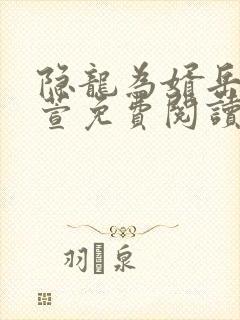 隐龍為婿岳
萱免費閱讀
羽泉